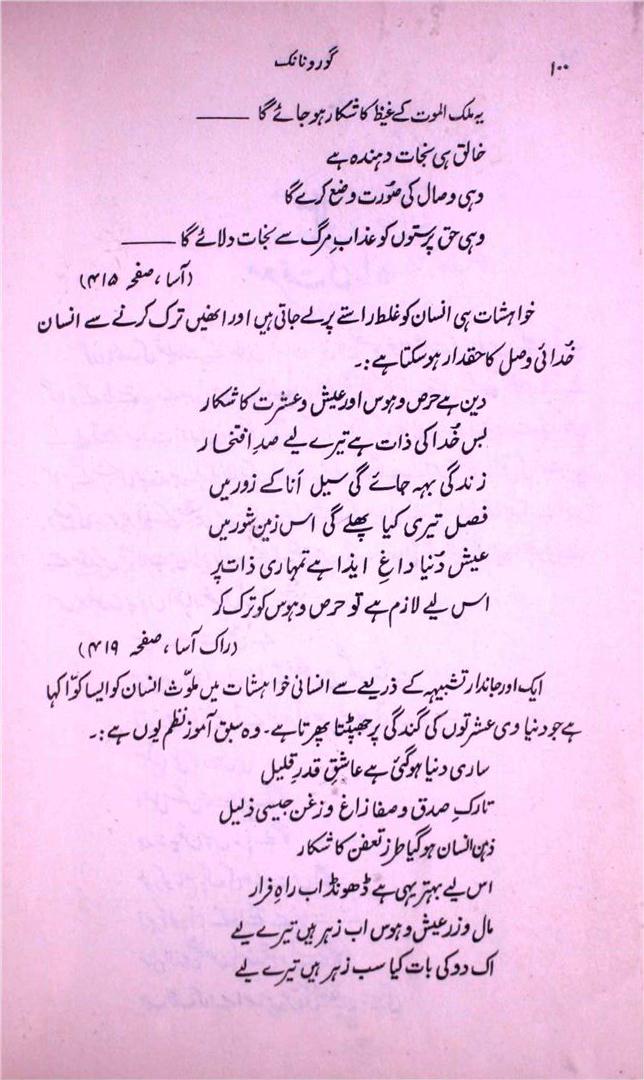 ۱۰۰
گورونانک
یہ ملک الموت کے غیظ کا شکار ہو جائے گا ———
خالق ہی نجات دہندہ ہے
وہی وصال کی صورت وضع کرے گا
وہی حق پرستوں کو عذابِ مرگ سے نجات دلائے گا ———
(آسا، صفحہ ۴۱۵)
خواہشات ہی انسان کو غلط راستے پر لے جاتی ہیں اور انھیں ترک کرنے سے انسان
خُدائی وصل کا حقدار ہو سکتا ہے :۔
دین ہے حرص و ہوس اور عیش و عشرت کا شکار
بس خُدا کی ذات ہے تیرے لیے صد افتخار
زندگی بہہ جائے گی سیل اَنا کے زور میں
فصل تیری کیا پھلے گی اس زمین شور میں
عیش دُنیا داغِ ایذا ہے تمہاری ذات پر
اس لیے لازم ہے تو حرص و ہوس کو ترک کر
(راگ آسا، صفحہ ۴۱۹)
ایک اور جاندار تشبیہہ کے ذریعے سے انسانی خواہشات میں ملوّث انسان کو ایسا کوّا کہا
ہے جو دنیاوی عشرتوں کی گندگی پر جھپٹتا پھرتا ہے۔ وہ سبق آموز نظم یوں ہے :۔
ساری دنیا ہو گئی ہے عاشقِ قدرِ قلیل
تارکِ صدق و صفا زاغ و زغن جیسی ذلیل
ذہن انسان ہو گیا طرز تعفن کا شکار
اس لیے بہتر یہی ہے ڈھونڈ اب راہِ فرار
مال و زر عیش و ہوس اب زہر ہیں تیرے لیے
اک دو کی بات کیا سب زہر ہیں تیرے لیے